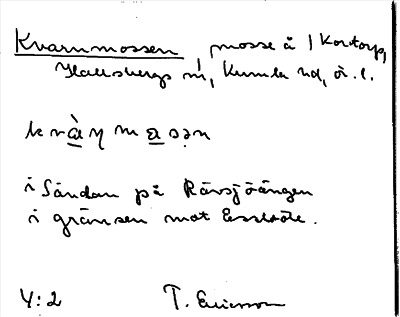 Kvarnmossen, mosse å 1 Kortorp,
Hallsbergs sn, Kumla hd, ör. l.
kvàɳmasən
i Söndan på Rävsjöängen
i gränsen mot
4:2 T. Ericsson